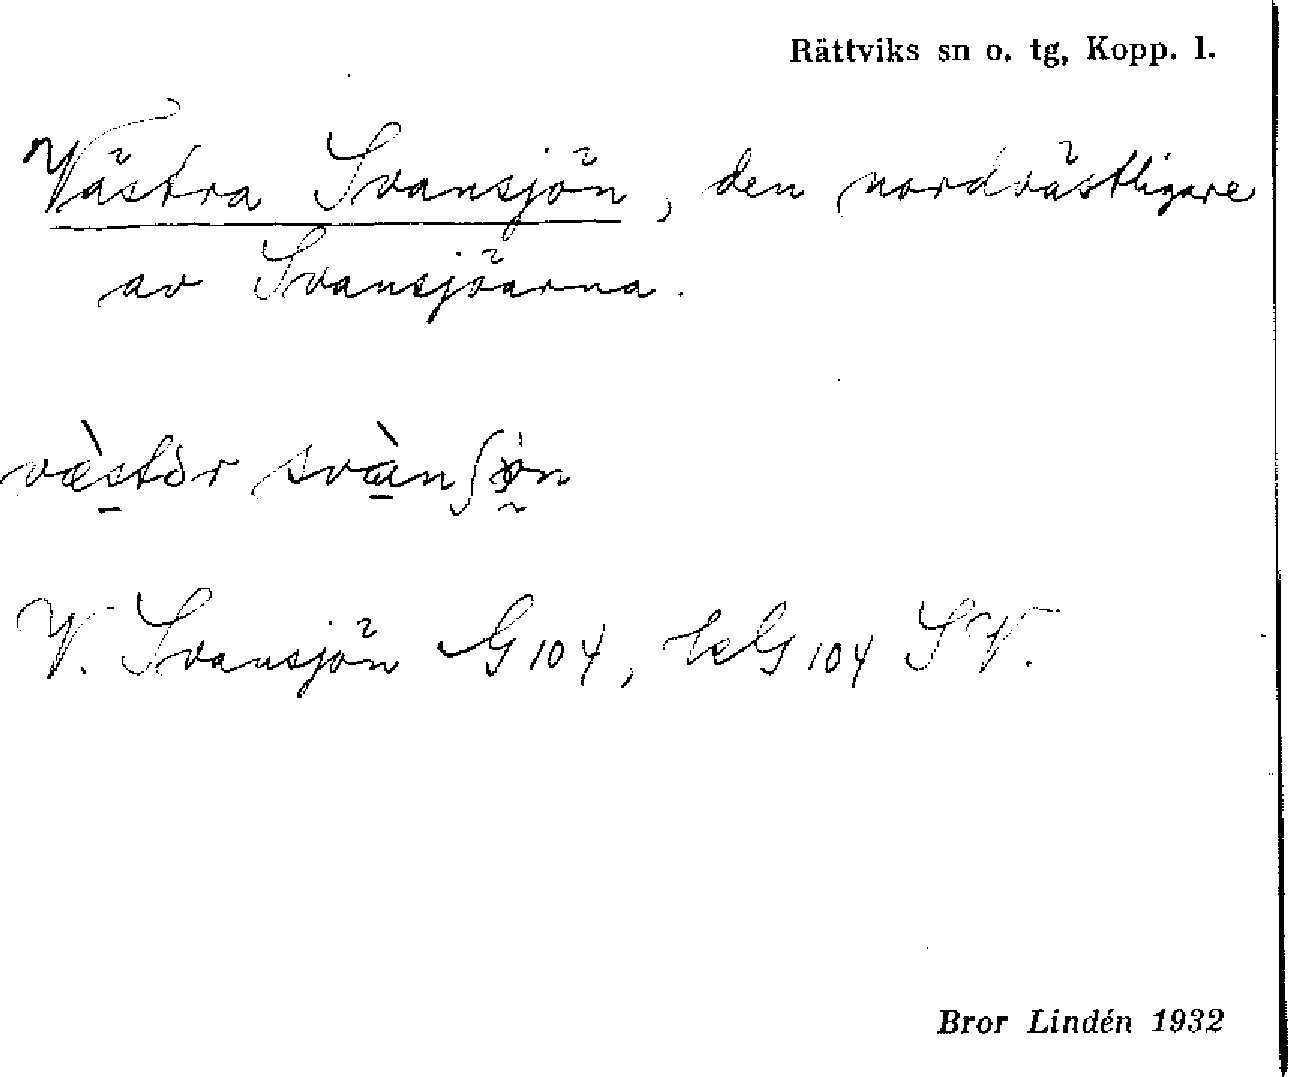 Rättviks sn o. tg, Kopp. l.
Västra Svansjön, den nordvästligare
av Svansjöarna.
V. Svansjön G 104, G 104 SV.
Bror Lindén 1932